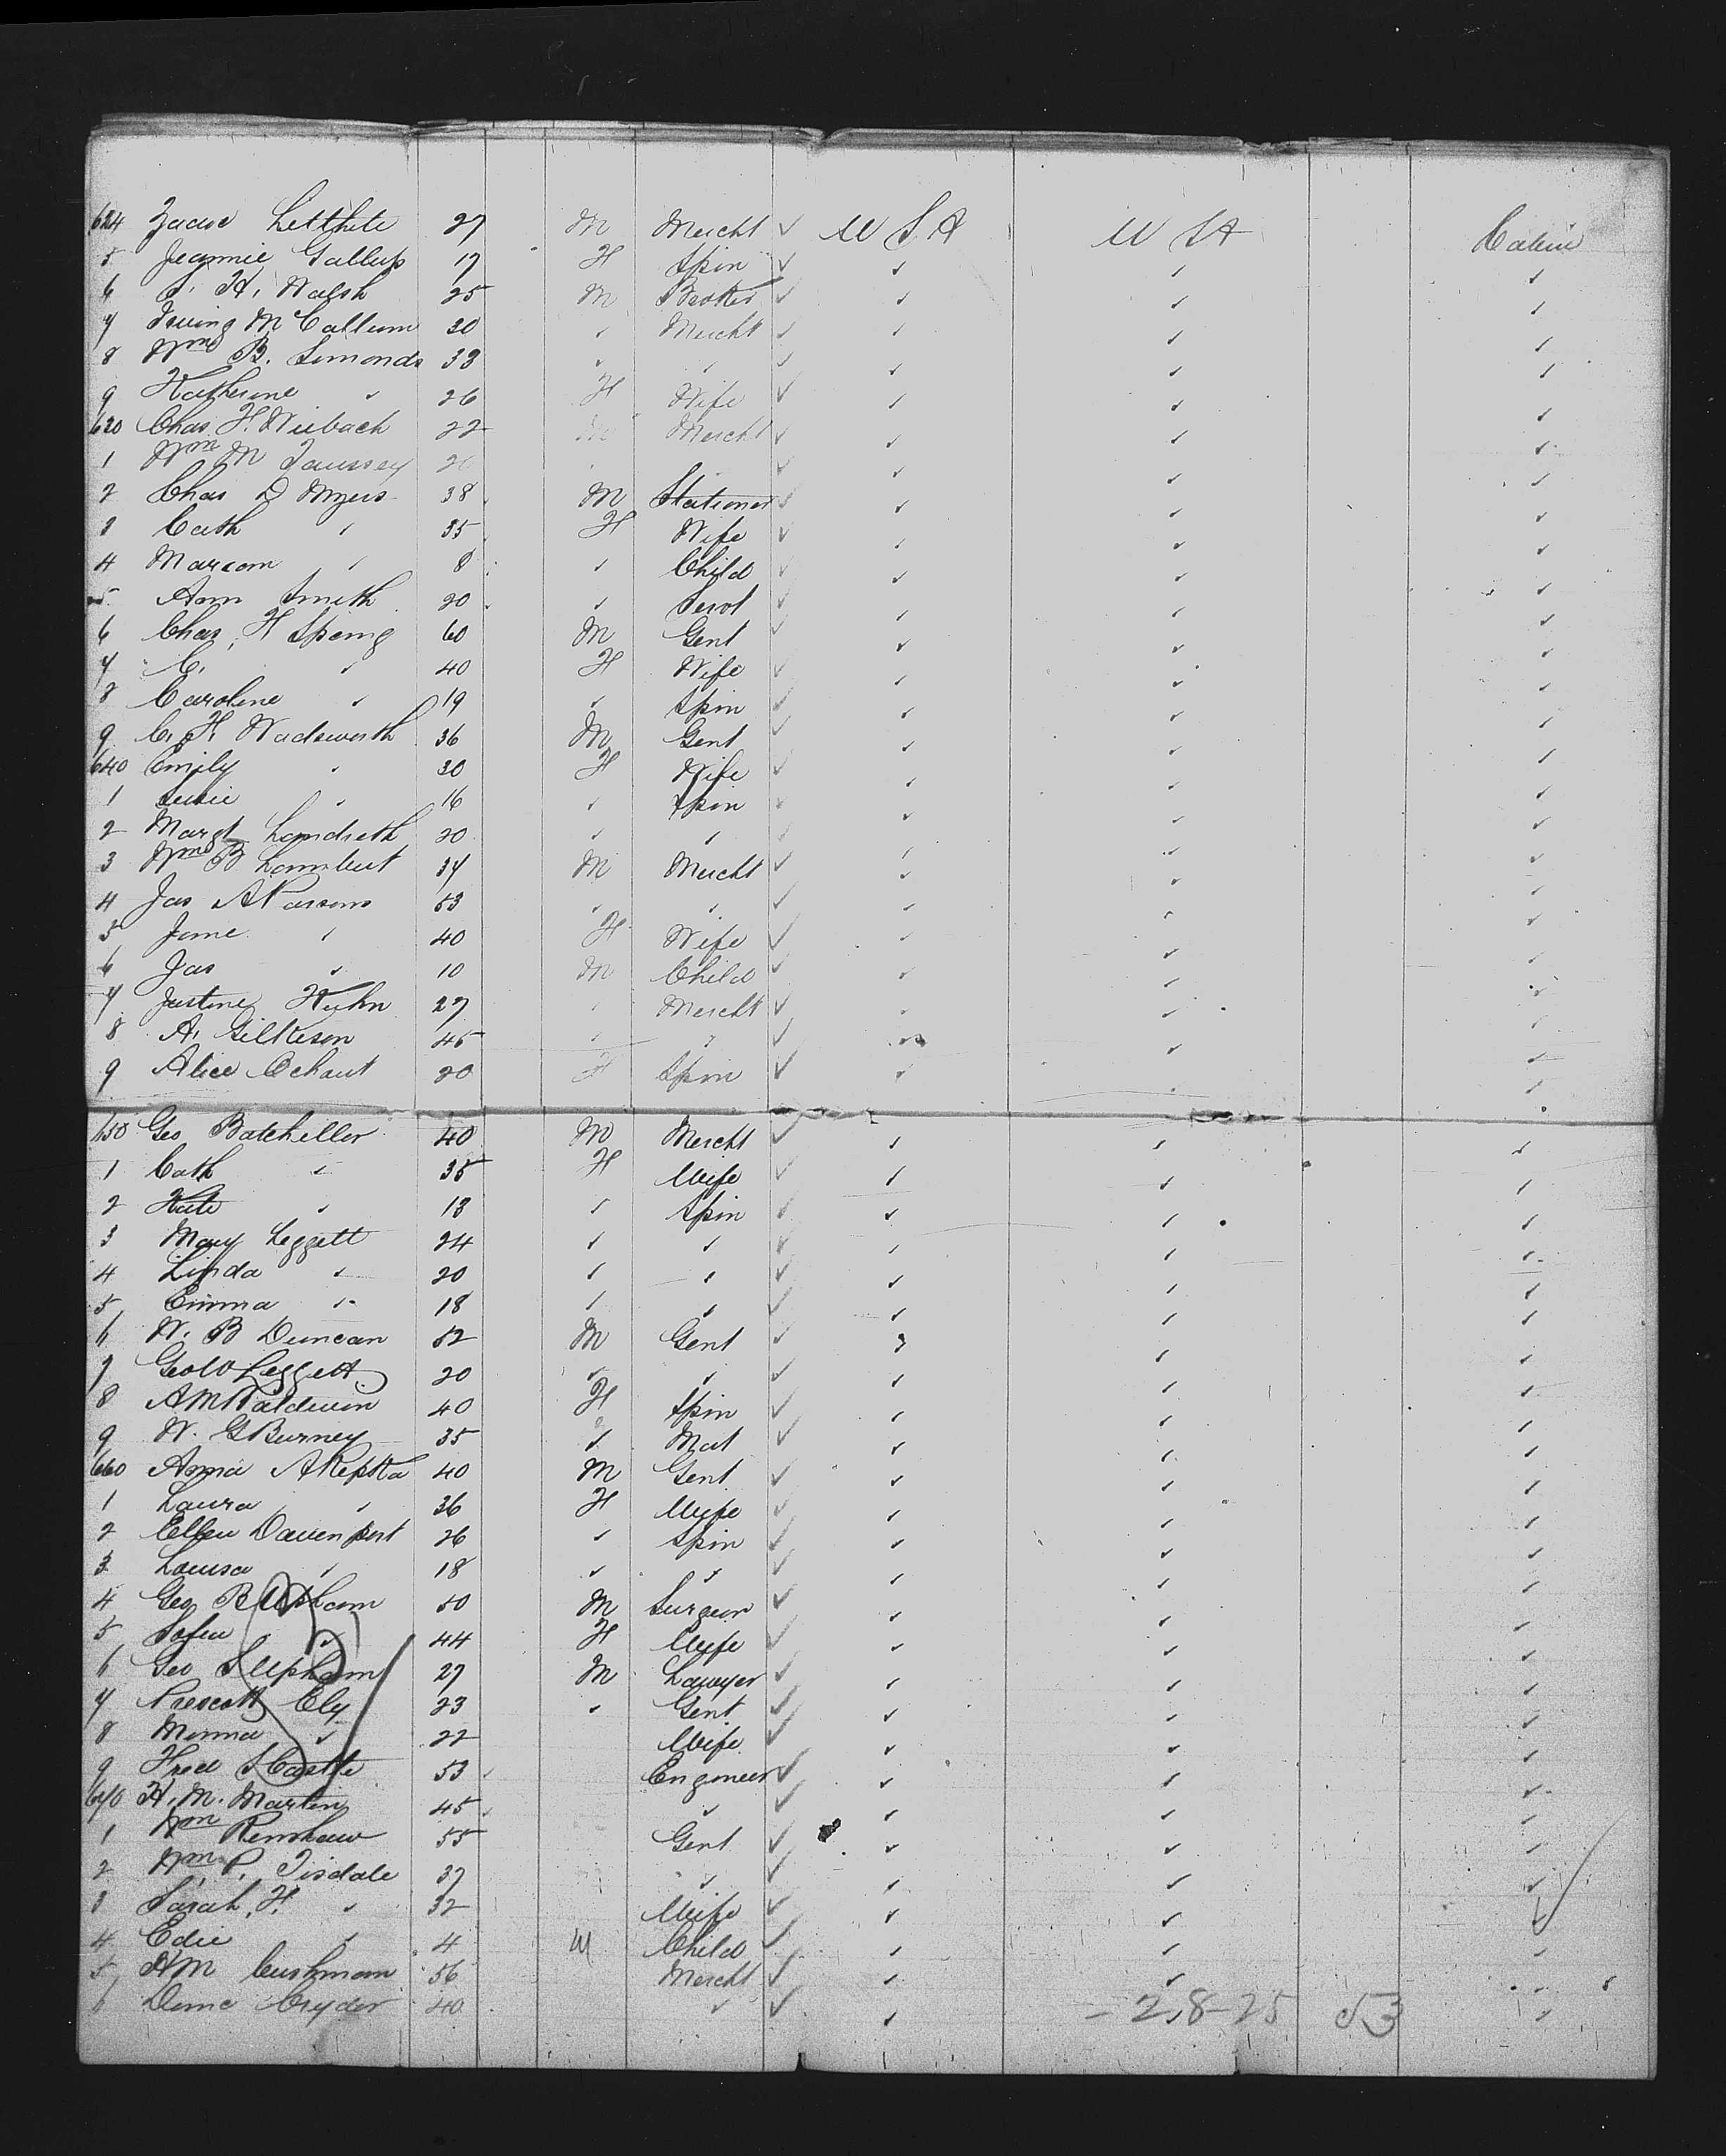 624 Isaac 27 M Mercht ✓ U S A U S A Cabin
5 Jeannie Gallup 17 F Spin ✓ ✓ ✓ ✓
6 S. H. Walsh 25 M Broker ✓ ✓ ✓ ✓
7 Irving McCallum 20 ✓ Mercht ✓ ✓ ✓ ✓
8 Wm B. Simonds 33 ✓ ✓ ✓ ✓ ✓ ✓
9 Katherine ✓ 26 F Wife ✓ ✓ ✓ ✓
630 Chas F. Wiebach 22 M Mercht ✓ ✓ ✓ ✓
1 Wm M Taussey 20 ✓ ✓ ✓ ✓
2 Chas D Myers 38 M Stationer ✓ ✓ ✓ ✓
3 Cath ✓ 35 F Wife ✓ ✓ ✓ ✓
4 Marcom ✓ 8 ✓ Child ✓ ✓ ✓ ✓
5 Ann Smith 20 ✓ Servt ✓ ✓ ✓ ✓
6 Chas. H 60 M Gent ✓ ✓ ✓ ✓
7 C. ✓ 40 F Wife ✓ ✓ ✓ ✓
8 Caroline ✓ 19 ✓ Spin ✓ ✓ ✓ ✓
9 C. F. Wadsworth 36 M Gent ✓ ✓ ✓ ✓
640 Emily ✓ 30 F Wife ✓ ✓ ✓ ✓
1 Susie ✓ 16 ✓ Spin ✓ ✓ ✓ ✓
2 Margt Landreth 20 ✓ ✓ ✓ ✓ ✓ ✓
3 Wm B Lambert 34 M Mercht ✓ ✓ ✓ ✓
4 Jas A Parsons 53 ✓ ✓ ✓ ✓ ✓ ✓
5 Jane ✓ 40 F Wife ✓ ✓ ✓ ✓
6 Jas ✓ 10 M Child ✓ ✓ ✓ ✓
7 Justine Kuhn 27 ✓ Mercht ✓ ✓ ✓ ✓
8 A. Gilkeson 45 ✓ ✓ ✓ ✓ ✓ ✓
9 Alice Ochant 20 F Spin ✓ ✓ ✓ ✓
650 Geo Batcheller 40 M Mercht ✓ ✓ ✓ ✓
1 Cath ✓ 35 F Wife ✓ ✓ ✓ ✓
2 Kate ✓ 18 ✓ Spin ✓ ✓ ✓ ✓
3 Mary Leggett 24 ✓ ✓ ✓ ✓ ✓ ✓
4 Linda ✓ 20 ✓ ✓ ✓ ✓ ✓ ✓
5 Emma ✓ 18 ✓ ✓ ✓ ✓ ✓ ✓
6 W. B Duncan 52 M Gent ✓ ✓ ✓ ✓
7 Geo W Leggett 20 ✓ ✓ ✓ ✓ ✓ ✓
8 A M Baldwin 40 F Spin ✓ ✓ ✓ ✓
9 W. G Burney 35 ✓ Mat ✓ ✓ ✓ ✓
660 Anna 40 M Gent ✓ ✓ ✓ ✓
1 Laura ✓ 36 F Wife ✓ ✓ ✓ ✓
2 Ellen Davenport 26 ✓ Spin ✓ ✓ ✓ ✓
3 Louisa ✓ 18 ✓ ✓ ✓ ✓ ✓ ✓
4 Geo B Upham 50 M Surgeon ✓ ✓ ✓ ✓
5 ✓ 44 F Wife ✓ ✓ ✓ ✓
6 Geo S Upham 27 M Lawyer ✓ ✓ ✓ ✓
7 Prescott Ely 23 ✓ Gent ✓ ✓ ✓ ✓
8 Minna ✓ 22 Wife ✓ ✓ ✓ ✓
9 Fred S Castle 53 Engineer ✓ ✓ ✓ ✓
670 H. M. Martin 45 ✓ ✓ ✓ ✓ ✓
1 Wm Renshaw 55 Gent ✓ ✓ ✓ ✓
2 Wm P. Tisdale 37 ✓ ✓ ✓ ✓ ✓
3 Sarah F. ✓ 32 Wife ✓ ✓ ✓ ✓
4 Edie ✓ 4 M Child ✓ ✓ ✓ ✓
5 H M Cushmam 56 Mercht ✓ ✓ ✓ ✓
6 Cryder 40 ✓ ✓ ✓ ✓
2.8-25 53